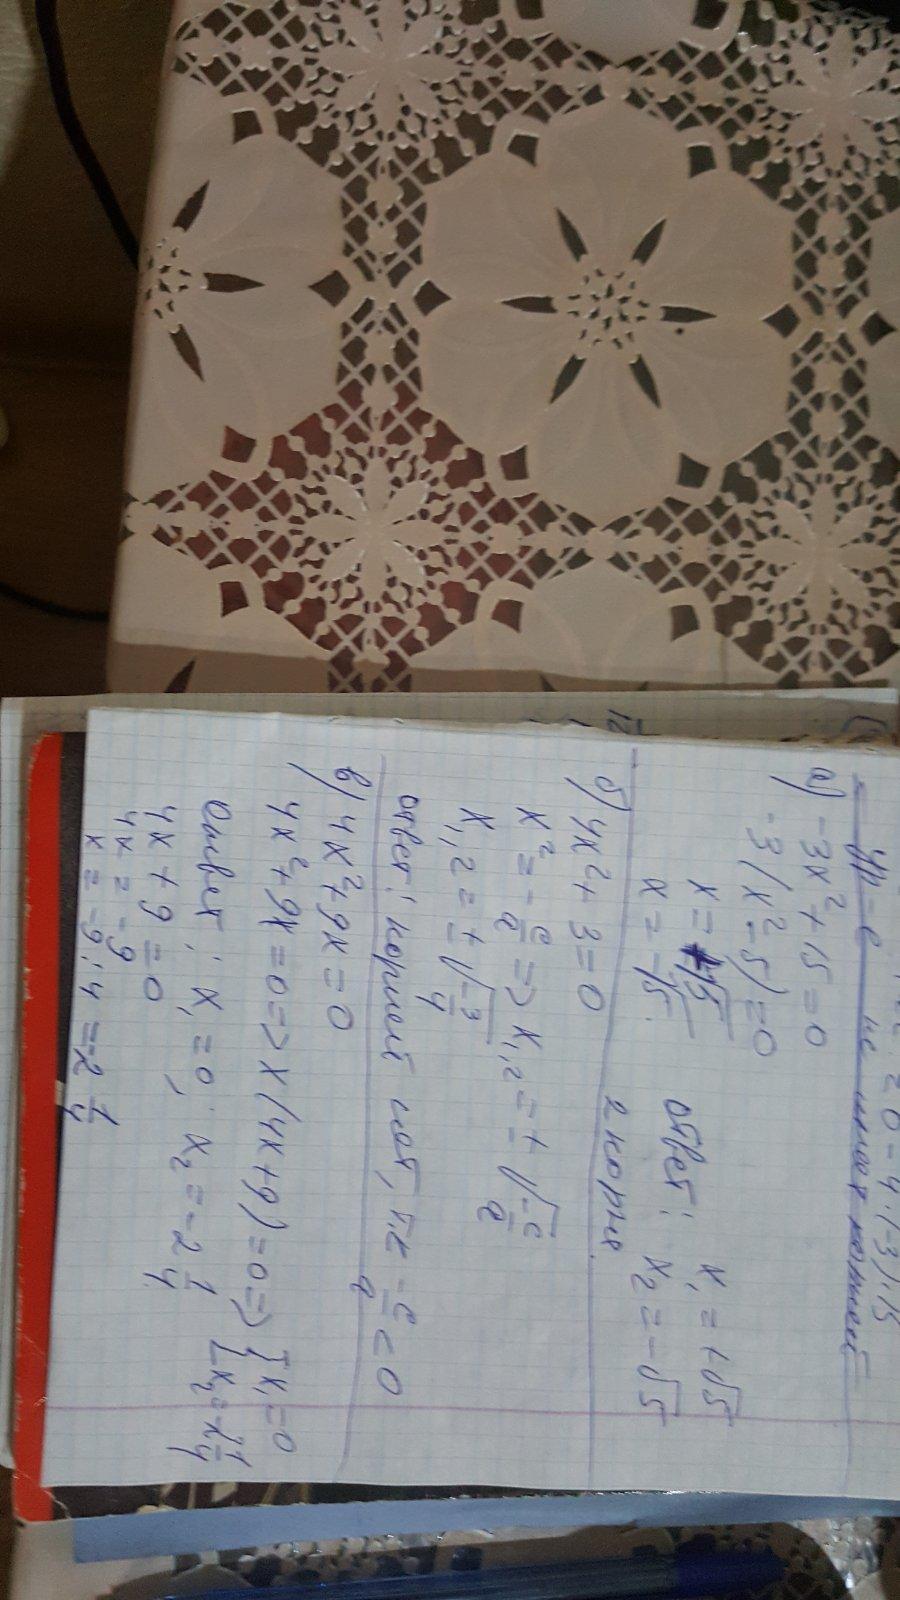 = 0 - 4·(-3)·15
ур-е не имеет корней
а) -3x² + 15 = 0
-3(x² - 5) = 0
x = +√5
x = -√5
ответ: x₁ = +√5
x₂ = -√5
2 корня.
б) 4x² + 3 = 0
x² = -c/a => x₁,₂ = ±√-c/a
x₁,₂ = ±√-3/4
ответ: корней нет, т.к -c/a < 0
в) 4x² + 9x = 0
4x² + 9x = 0 => x(4x + 9) = 0 => [x₁ = 0
[x₂ = -2 1/4
Ответ: x₁ = 0; x₂ = -2 1/4
4x + 9 = 0
4x = -9
x = -9:4 = -2 1/4